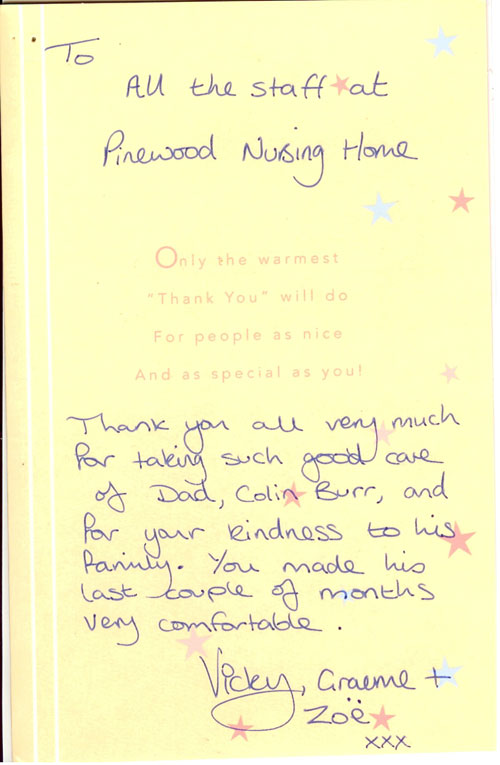 To
All the staff at
Pinewood Nursing Home
Only the warmest
"Thank You" will do
For people as nice
And as special as you!
Thank you all very much
for taking such good care
of Dad, Colin Burr, and
for your kindness to his
family. You made his
last couple of months
very comfortable.
Vicky, Graeme +
Zoë
xxx